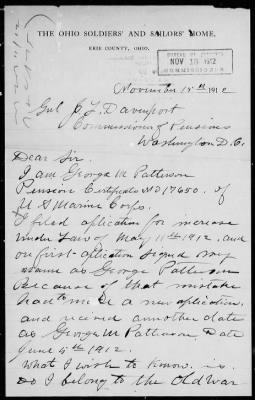 THE OHIO SOLDIERS' AND SAILORS' HOME,
ERIE COUNTY, OHIO.
BUREAU OF PENSIONS
NOV 18 1912
COMMISSIONER
November 15th 1912
Gnl J. L. Davenport
Commissioner of Pensions
Washington D.C.
Dear Sir.
I am George M Pattison
Pension Certificate No 17650. of
U S Marine Corps.
I filed aplication for increase
under Law of May 11th 1912. and
on first aplication signed my
name as George Patterson
Because of that mistake
had to make a new aplication.
and received annother date
as George M Pattison. Date
June 5th 1912.
what I wish to know. is.
do I belong to the old war